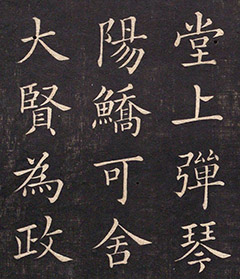 堂上彈琴
陽鱎可舍
大賢為政